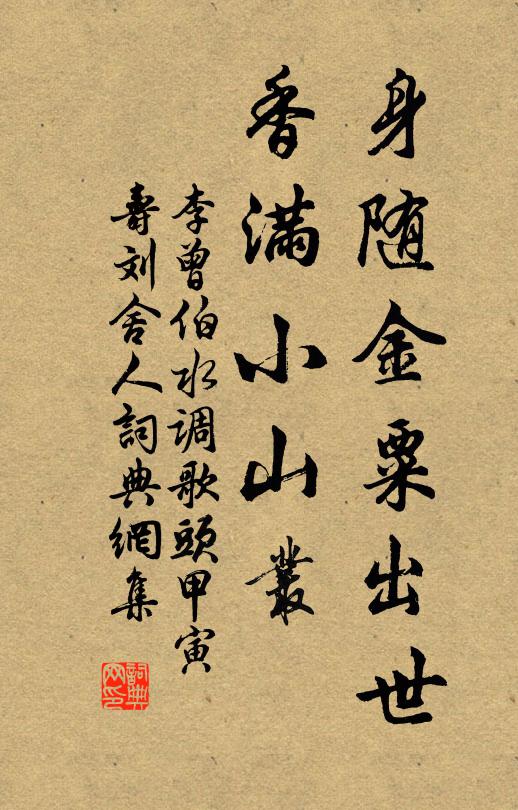 身随金粟出世
香满小山叢
李曾伯水调歌頭甲寅
壽刘舍人詞典網集
詞典网印